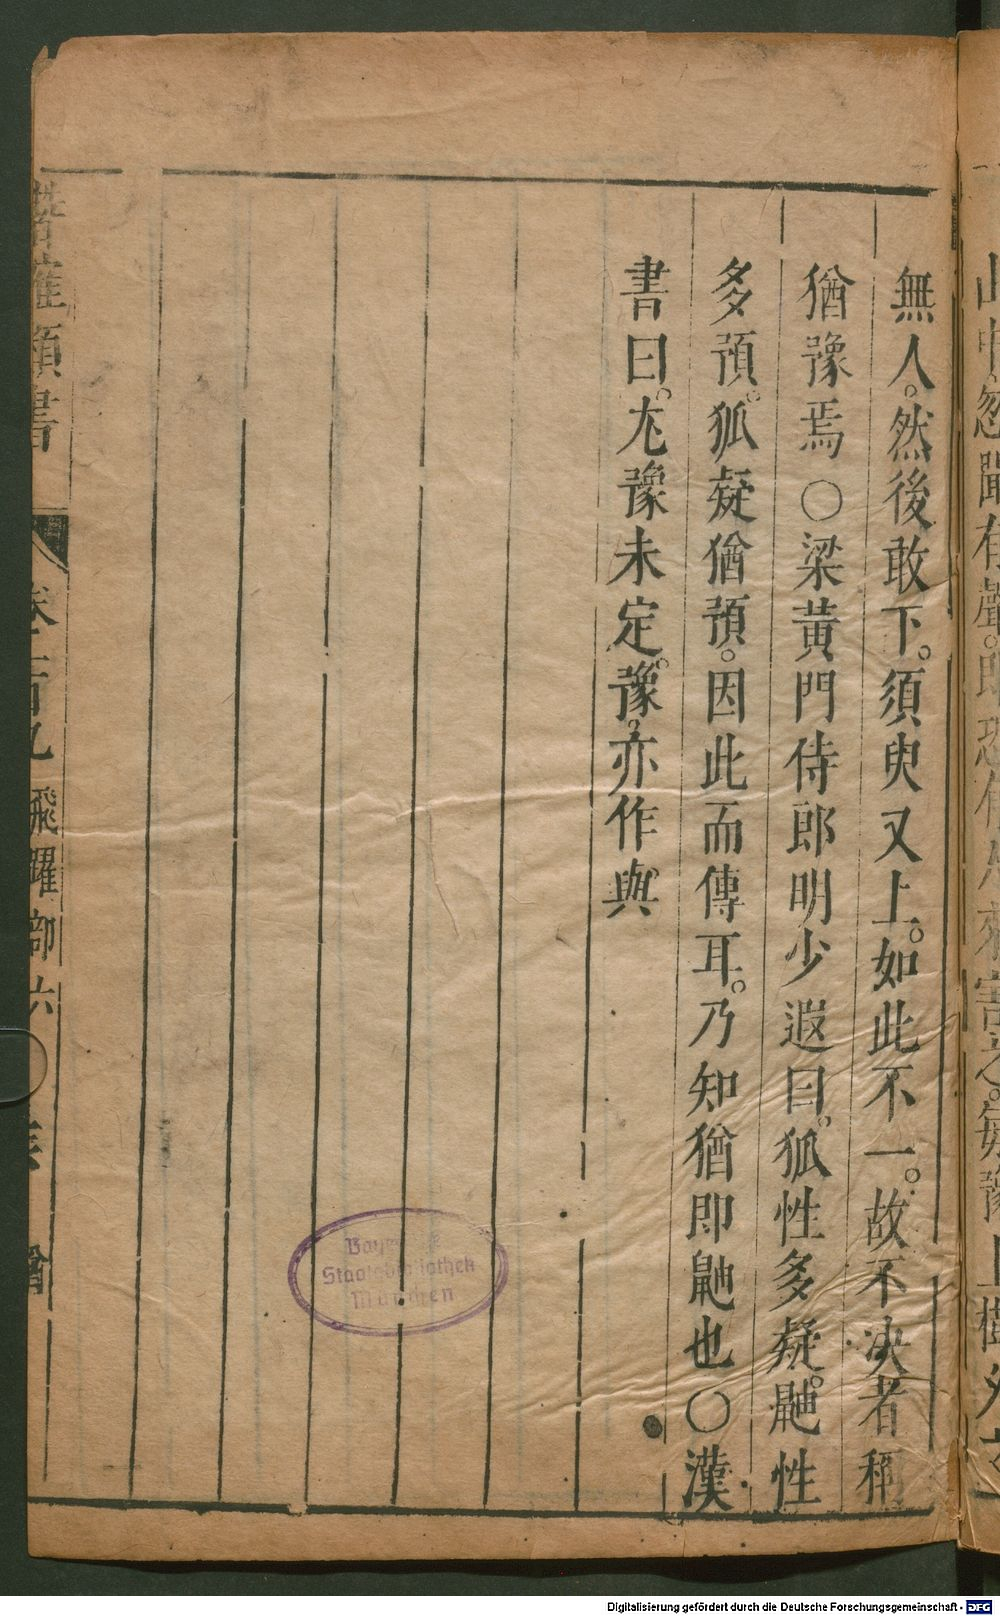 無人。然後敢下。須臾又上。如此不一。故不決者稱
猶豫焉○梁黃門侍郎明少遐曰。狐性多疑。鼬性
多預。狐疑猶預。因此而傳耳。乃知猶即鼬也○漢
書曰。尢豫未定。豫。亦作與
類書 飛躍部六
Staatsbibliothek
München
Digitalisierung gefördert durch die Deutsche Forschungsgemeinschaft - DFG